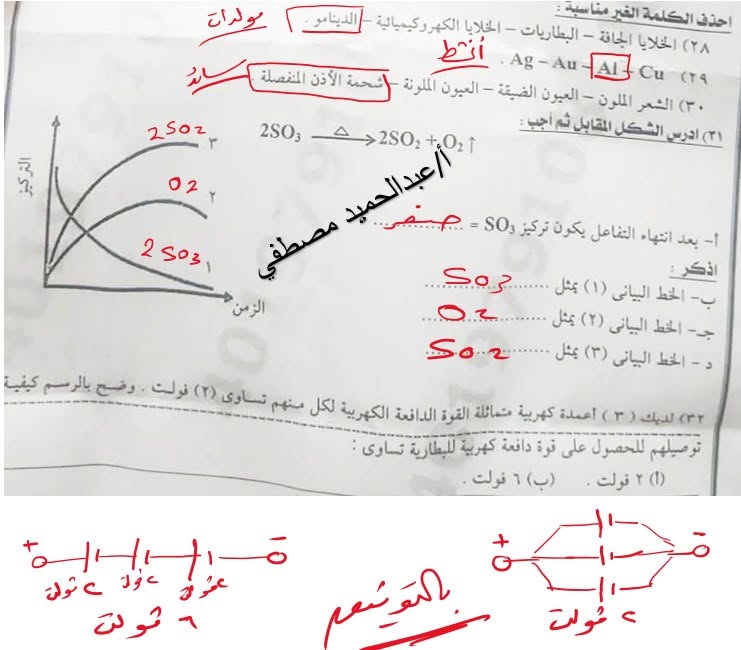 احذف الكلمة الغير مناسبة :
٢٨) الخلايا الجافة – البطاريات – الخلايا الكهروكيميائية – الدينامو . مولدات
٢٩) Ag – Au – Al – Cu . أنشط
٣٠) الشعر الملون – العيون الضيقة – العيون الملونة – شحمة الأذن المنفصلة . سائد
٣١) ادرس الشكل المقابل ثم أجب :
2SO₃ △→ 2SO₂ + O₂ ↑
التركيز
2SO2 ٣
O2 ٢
2SO3 ١
الزمن
أ/عبدالحميد مصطفي
أ- بعد انتهاء التفاعل يكون تركيز SO₃ = صفر
اذكر :
ب- الخط البيانى (١) يمثل SO3
جـ- الخط البيانى (٢) يمثل O2
د- الخط البيانى (٣) يمثل SO2
٣٢) لديك (٣) أعمدة كهربية متماثلة القوة الدافعة الكهربية لكل منهم تساوى (٢) فولت . وضح بالرسم كيفية
توصيلهم للحصول على قوة دافعة كهربية للبطارية تساوى :
(أ) ٢ فولت . (ب) ٦ فولت .
+ –
٢ ڤولت
+ –
٢ ڤولت ٢ ڤولت ٢ ڤولت
٦ ڤولت
بالتوفيق